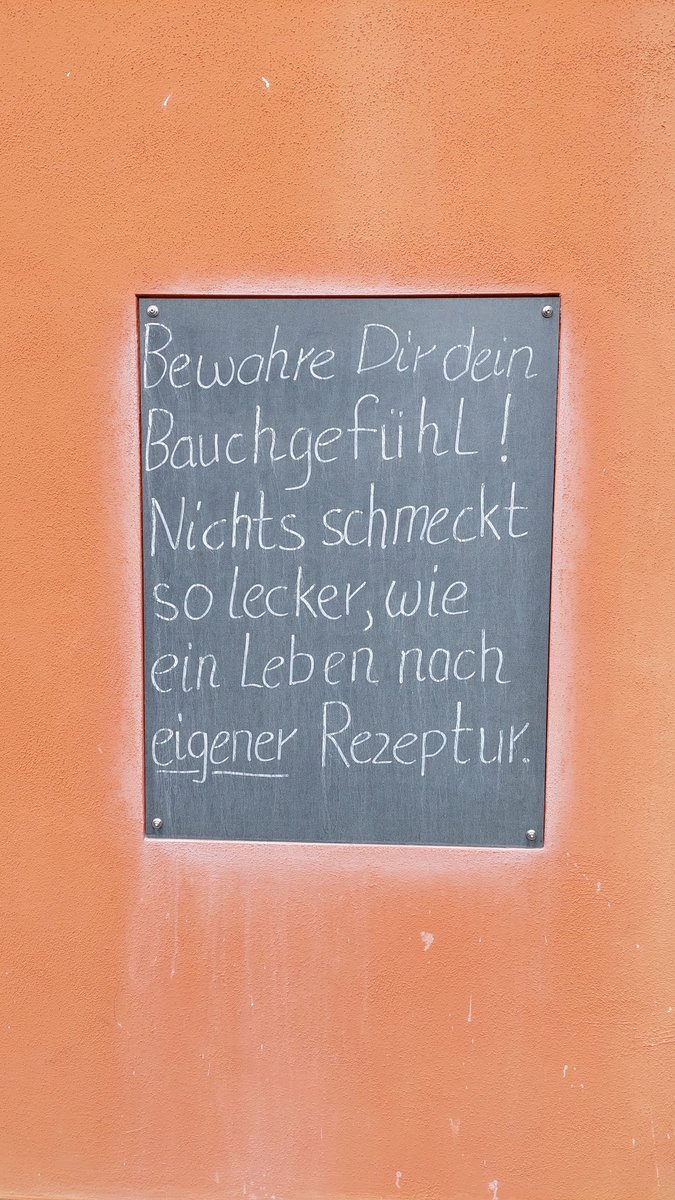 Bewahre Dir dein
Bauchgefühl!
Nichts schmeckt
so lecker, wie
ein Leben nach
eigener Rezeptur.